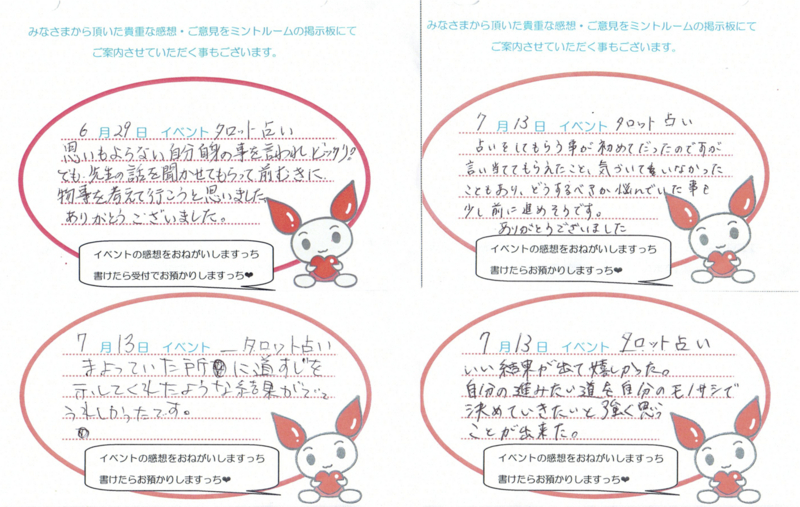 みなさまから頂いた貴重な感想・ご意見をミントルームの掲示板にて
ご案内させていただく事もございます。
6月29日 イベント タロット占い
思いもよらない自分自身の事を言われビックリ!
でも、先生の話を聞かせてもらって前むきに
物事を考えて行こうと思いました。
ありがとうございました。
イベントの感想をおねがいしますっち
書けたら受付でお預かりしますっち❤
みなさまから頂いた貴重な感想・ご意見をミントルームの掲示板にて
ご案内させていただく事もございます。
7月13日 イベント タロット占い
占いをしてもらう事が初めてだったのですが
言い当ててもらえたこと、気がついていなかった
こともあり、どうするべきか悩んでいた事も
少し前に進めそうです。
ありがとうございました
イベントの感想をおねがいしますっち
書けたらお預かりしますっち❤
7月13日 イベント タロット占い
まよっていた所に道すじを
示してくれたような結果がでて
うれしかったです。
イベントの感想をおねがいしますっち
書けたらお預かりしますっち❤
7月13日 イベント タロット占い
いい結果が出て嬉しかった。
自分の進みたい道を自分のモノサシで
決めていきたいと強く思う
ことが出来た。
イベントの感想をおねがいしますっち
書けたらお預かりしますっち❤